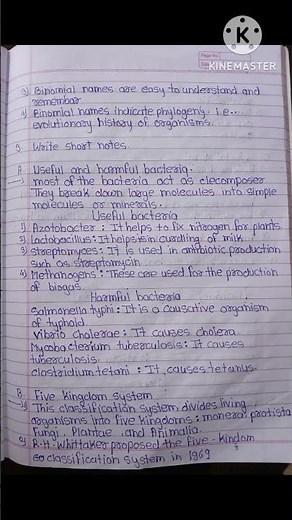 K
KINEMASTER
Page No.
3) Binomial names are easy to understand and
remember
4) Binomial names indicate phylogeny i.e..
evolutionary history of organisms.
3. Write short notes.
A. Useful and harmful bacteria.
most of the bacteria act as clecomposer
They break down large molecules into simple
molecules or minerals.
Useful bacteria
1) Azotobacter : It helps to fix nitrogen for plants
2) Lactobacillus: It helps in curdling of milk
3) Streptomyces: It is used in antibiotic production
such as streptomycin
4) Methanogens : These are used for the production
of biogas.
Harmful bacteria
Salmonella typhi: It is a causative organism
of typhoid
Vibrio cholerae : It causes cholera.
Mycobacterium tuberculosis : It causes
tuberculosis.
clostridium tetani : It causes tetanus.
B. Five Kingdom system
1) This classification system divides living
organisms into five kingdoms: monera, protista
Fungi, Plantae and Animalia.
2) R.H. Whittaker proposed the Five-kindom
classification system in 1969